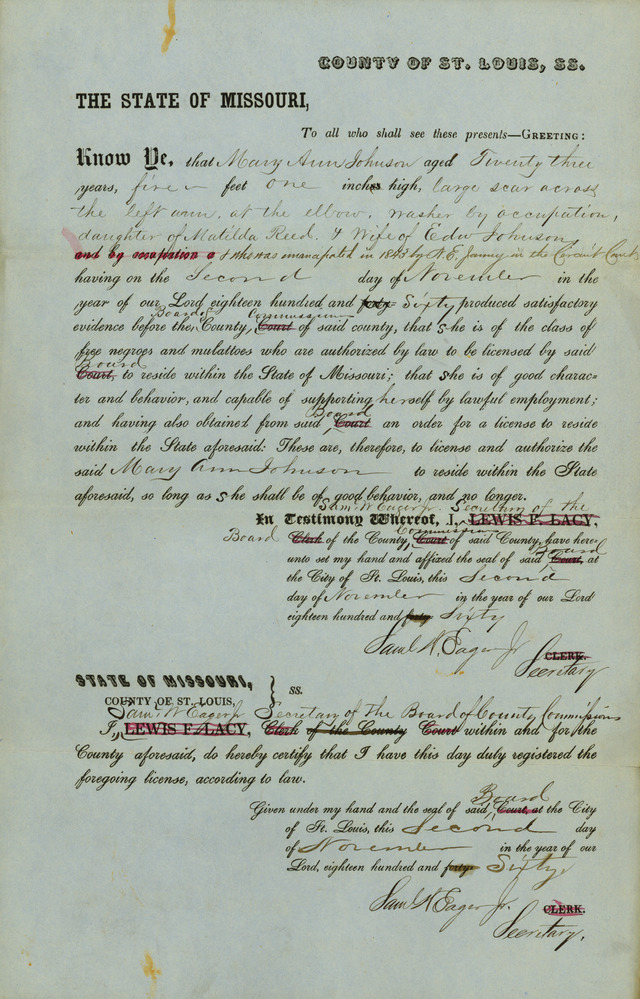 COUNTY OF ST. LOUIS, SS.
THE STATE OF MISSOURI,
To all who shall see these presents—GREETING:
Know Ye, that Mary Ann Johnson aged Twenty three
years, five feet one inches high, large scar across
the left arm, at the elbow, washer by occupation,
daughter of Matilda Reed & Wife of Edw Johnson
and by occupation a & she was emancipated in 1843 by N. E. Janney in the Circuit Court
having on the Second day of November in the
year of our Lord eighteen hundred and forty Sixty produced satisfactory
Board of Commissioners
evidence before the County Court of said county, that she is of the class of
free negroes and mulattoes who are authorized by law to be licensed by said
Board
Court, to reside within the State of Missouri; that she is of good charac-
ter and behavior, and capable of supporting herself by lawful employment;
Board
and having also obtained from said Court an order for a license to reside
within the State aforesaid: These are, therefore, to license and authorize the
said Mary Ann Johnson to reside within the State
aforesaid, so long as she shall be of good behavior, and no longer.
Sam W Eager Jr. Secretary of the
In Testimony Whereof, I, LEWIS F. LACY,
Board Commissioners
Clerk of the County Court of said County, have here-
Board
unto set my hand and affixed the seal of said Court, at
the City of St. Louis, this Second
day of November in the year of our Lord
eighteen hundred and forty Sixty
Saml W. Eager Jr
CLERK.
Secretary
STATE OF MISSOURI,
COUNTY OF ST. LOUIS, } SS.
Sam. W Eager Jr Secretary of the Board of County Commissions
I, LEWIS F. LACY, Clerk of the County Court within and for the
County aforesaid, do hereby certify that I have this day duly registered the
foregoing license, according to law.
Board
Given under my hand and the seal of said Court, at the City
of St. Louis, this Second day
of November in the year of our
Lord, eighteen hundred and forty Sixty
Saml W Eager Jr. CLERK.
Secretary.